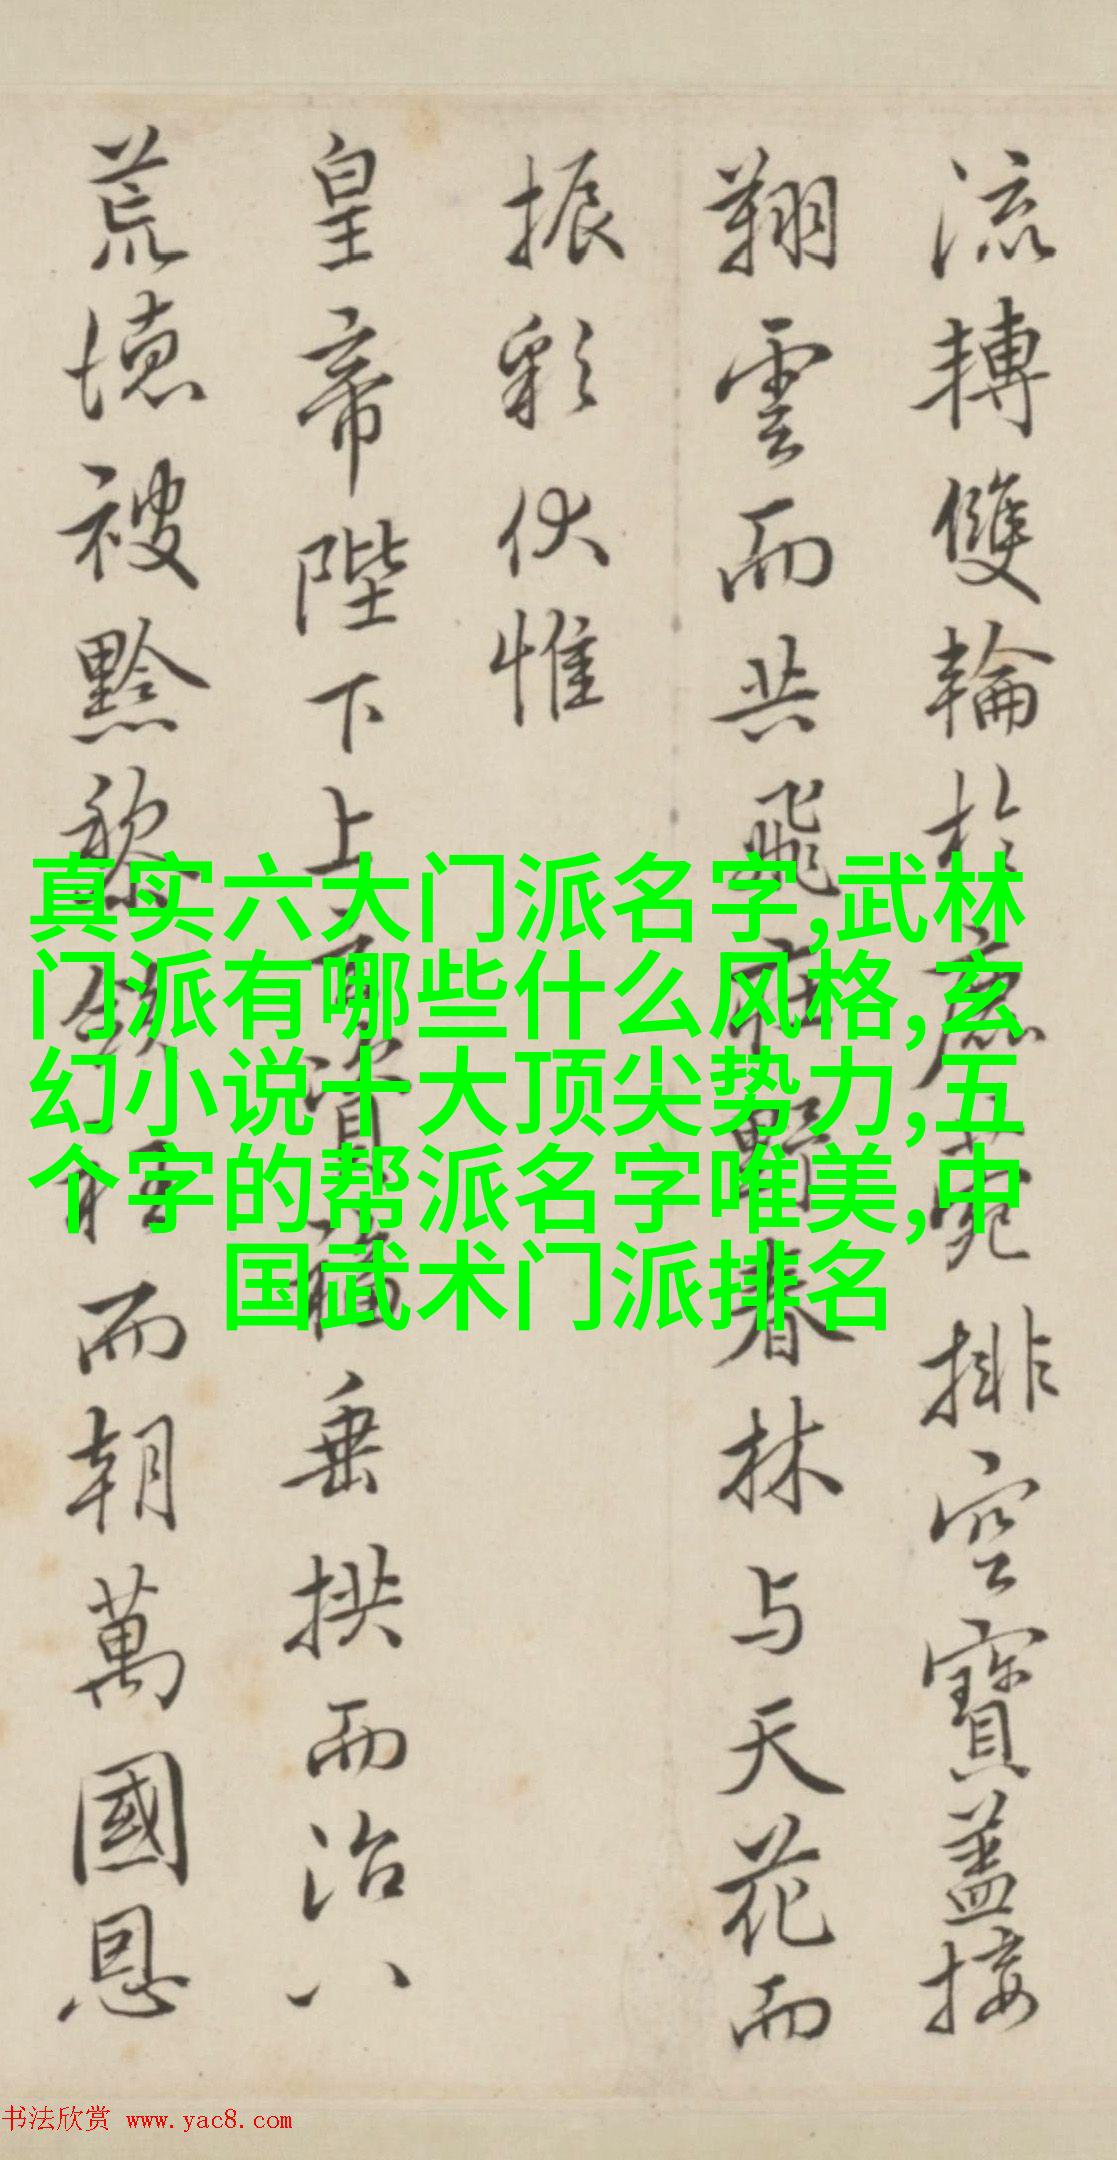 流轉雙輪於鹿菀排空寶蓋接
翔雲而共飛莊野春林与天花而
振彩伏惟
皇帝陛下上玄資福垂拱而治八
荒德被黔黎斂衽而朝萬國恩
真实六大门派名字,武林
门派有哪些什么风格,玄
幻小说十大顶尖势力,五
个字的帮派名字唯美,中
国武术门派排名
书法欣赏 www.yac8.com